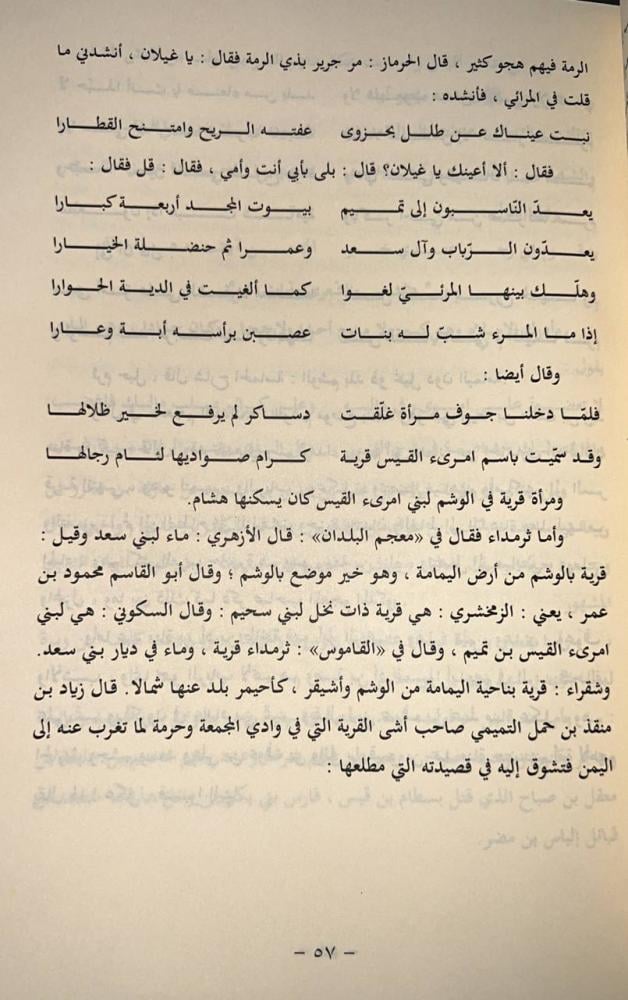 الرمة فيهم هجو كثير ، قال الحرماز : مر جرير بذي الرمة فقال : يا غيلان ، أنشدني ما
قلت في المرائي ، فأنشده :
نبت عيناك عن طلل بحزوى عفته الريح وامتنح القطارا
فقال : ألا أعينك يا غيلان؟ قال : بلى بأبي أنت وأمي ، فقال : قل فقال :
يعدّ النّاسبون إلى تميم بيوت المجد أربعة كبارا
يعدّون الرّباب وآل سعد وعمرا ثم حنضلة الخيارا
وهلّك بينها المرئيّ لغوا كما ألغيت في الدية الحوارا
إذا ما المرء شبّ له بنات عصبن برأسه أبة وعارا
وقال أيضا :
فلمّا دخلنا جوف مرأة غلّقت دساكر لم يرفع لخير ظلالها
وقد سمّيت باسم امرىء القيس قرية كرام صواديها لئام رجالها
ومرأة قرية في الوشم لبني امرىء القيس كان يسكنها هشام.
وأما ثرمداء فقال في «معجم البلدان» : قال الأزهري : ماء لبني سعد وقيل :
قرية بالوشم من أرض اليمامة ، وهو خير موضع بالوشم ؛ وقال أبو القاسم محمود بن
عمر ، يعني : الزمخشري : هي قرية ذات نخل لبني سحيم : وقال السكوني : هي لبني
امرىء القيس بن تميم ، وقال في «القاموس» : ثرمداء قرية ، وماء في ديار بني سعد.
وشقراء : قرية بناحية اليمامة من الوشم وأشيقر ، كأحيمر بلد عنها شمالا. قال زياد بن
منقذ بن حمل التميمي صاحب أشى القرية التي في وادي المجمعة وحرمة لما تغرب عنه إلى
اليمن فتشوق إليه في قصيدته التي مطلعها :
– ٥٧ –